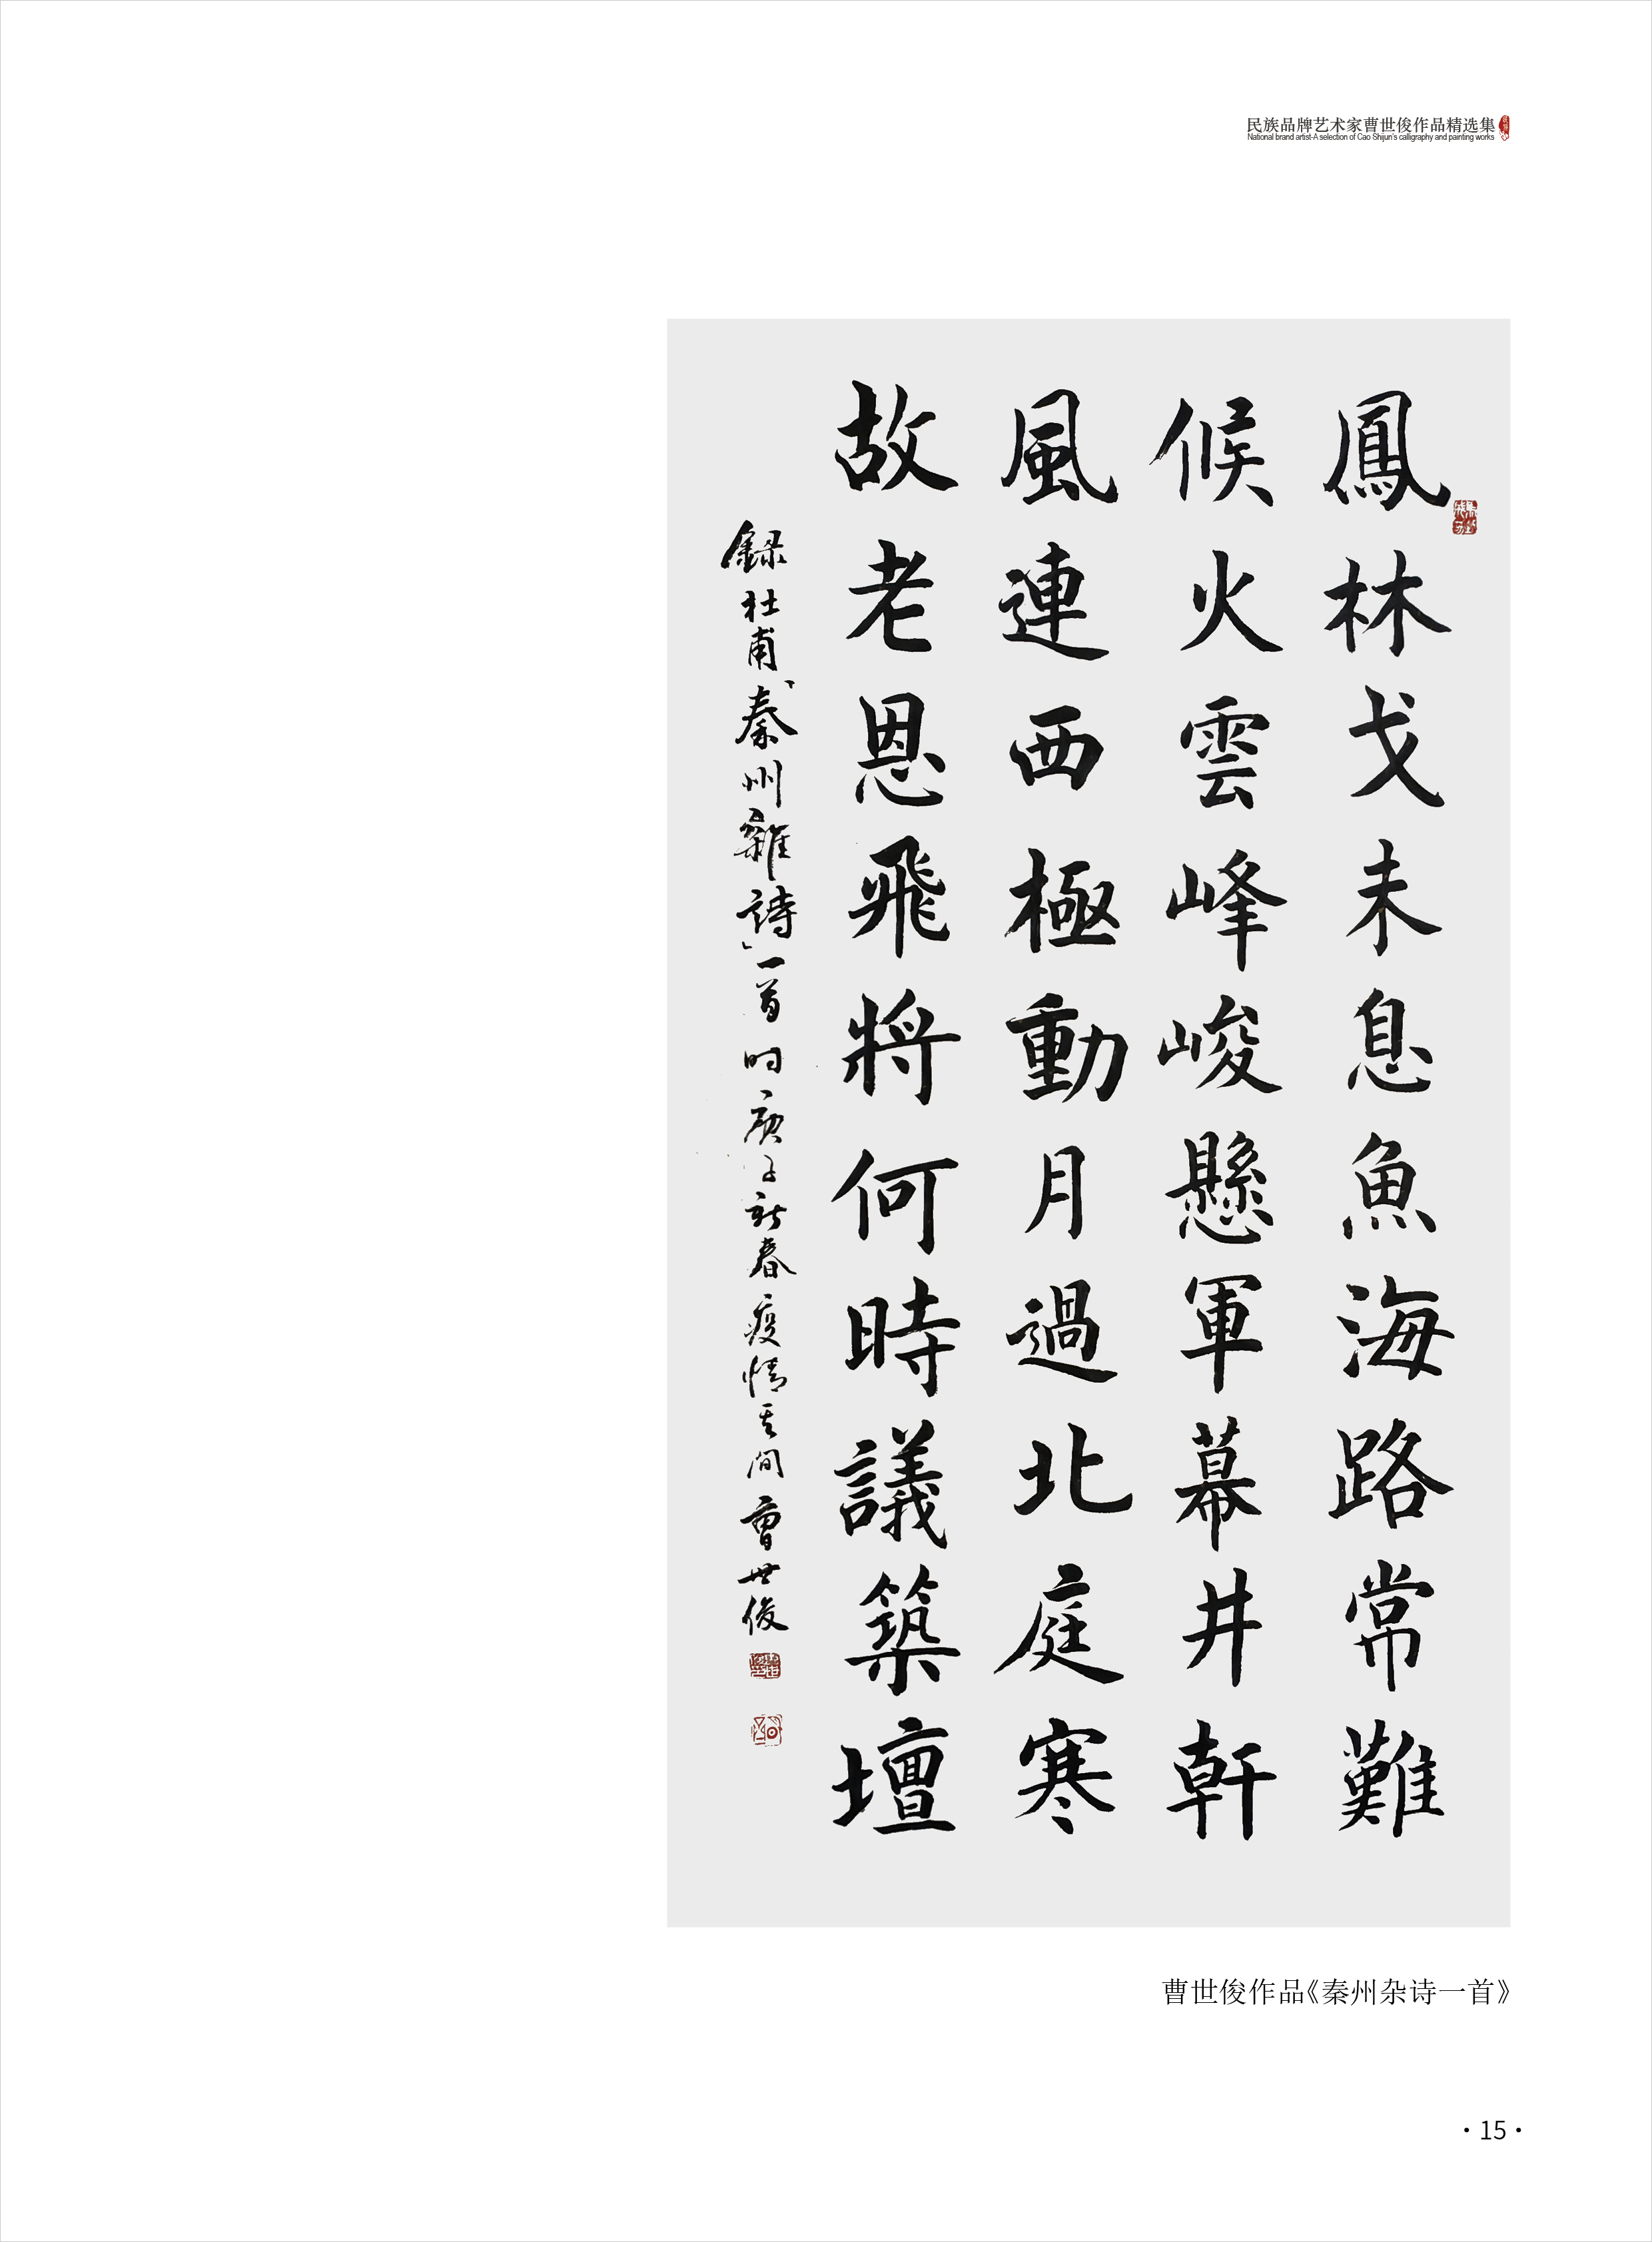 民族品牌艺术家曹世俊作品精选集
National brand artist-A selection of Cao Shijun's calligraphy and painting works
鳳林戈未息魚海路常難
候火雲峰峻懸軍幕井軒
風連西極動月過北庭寒
故老恩飛將何時議築壇
録杜甫「秦州雜詩」一首时庚子新春疫情其間曹世俊
曹世俊作品《秦州杂诗一首》
·15·